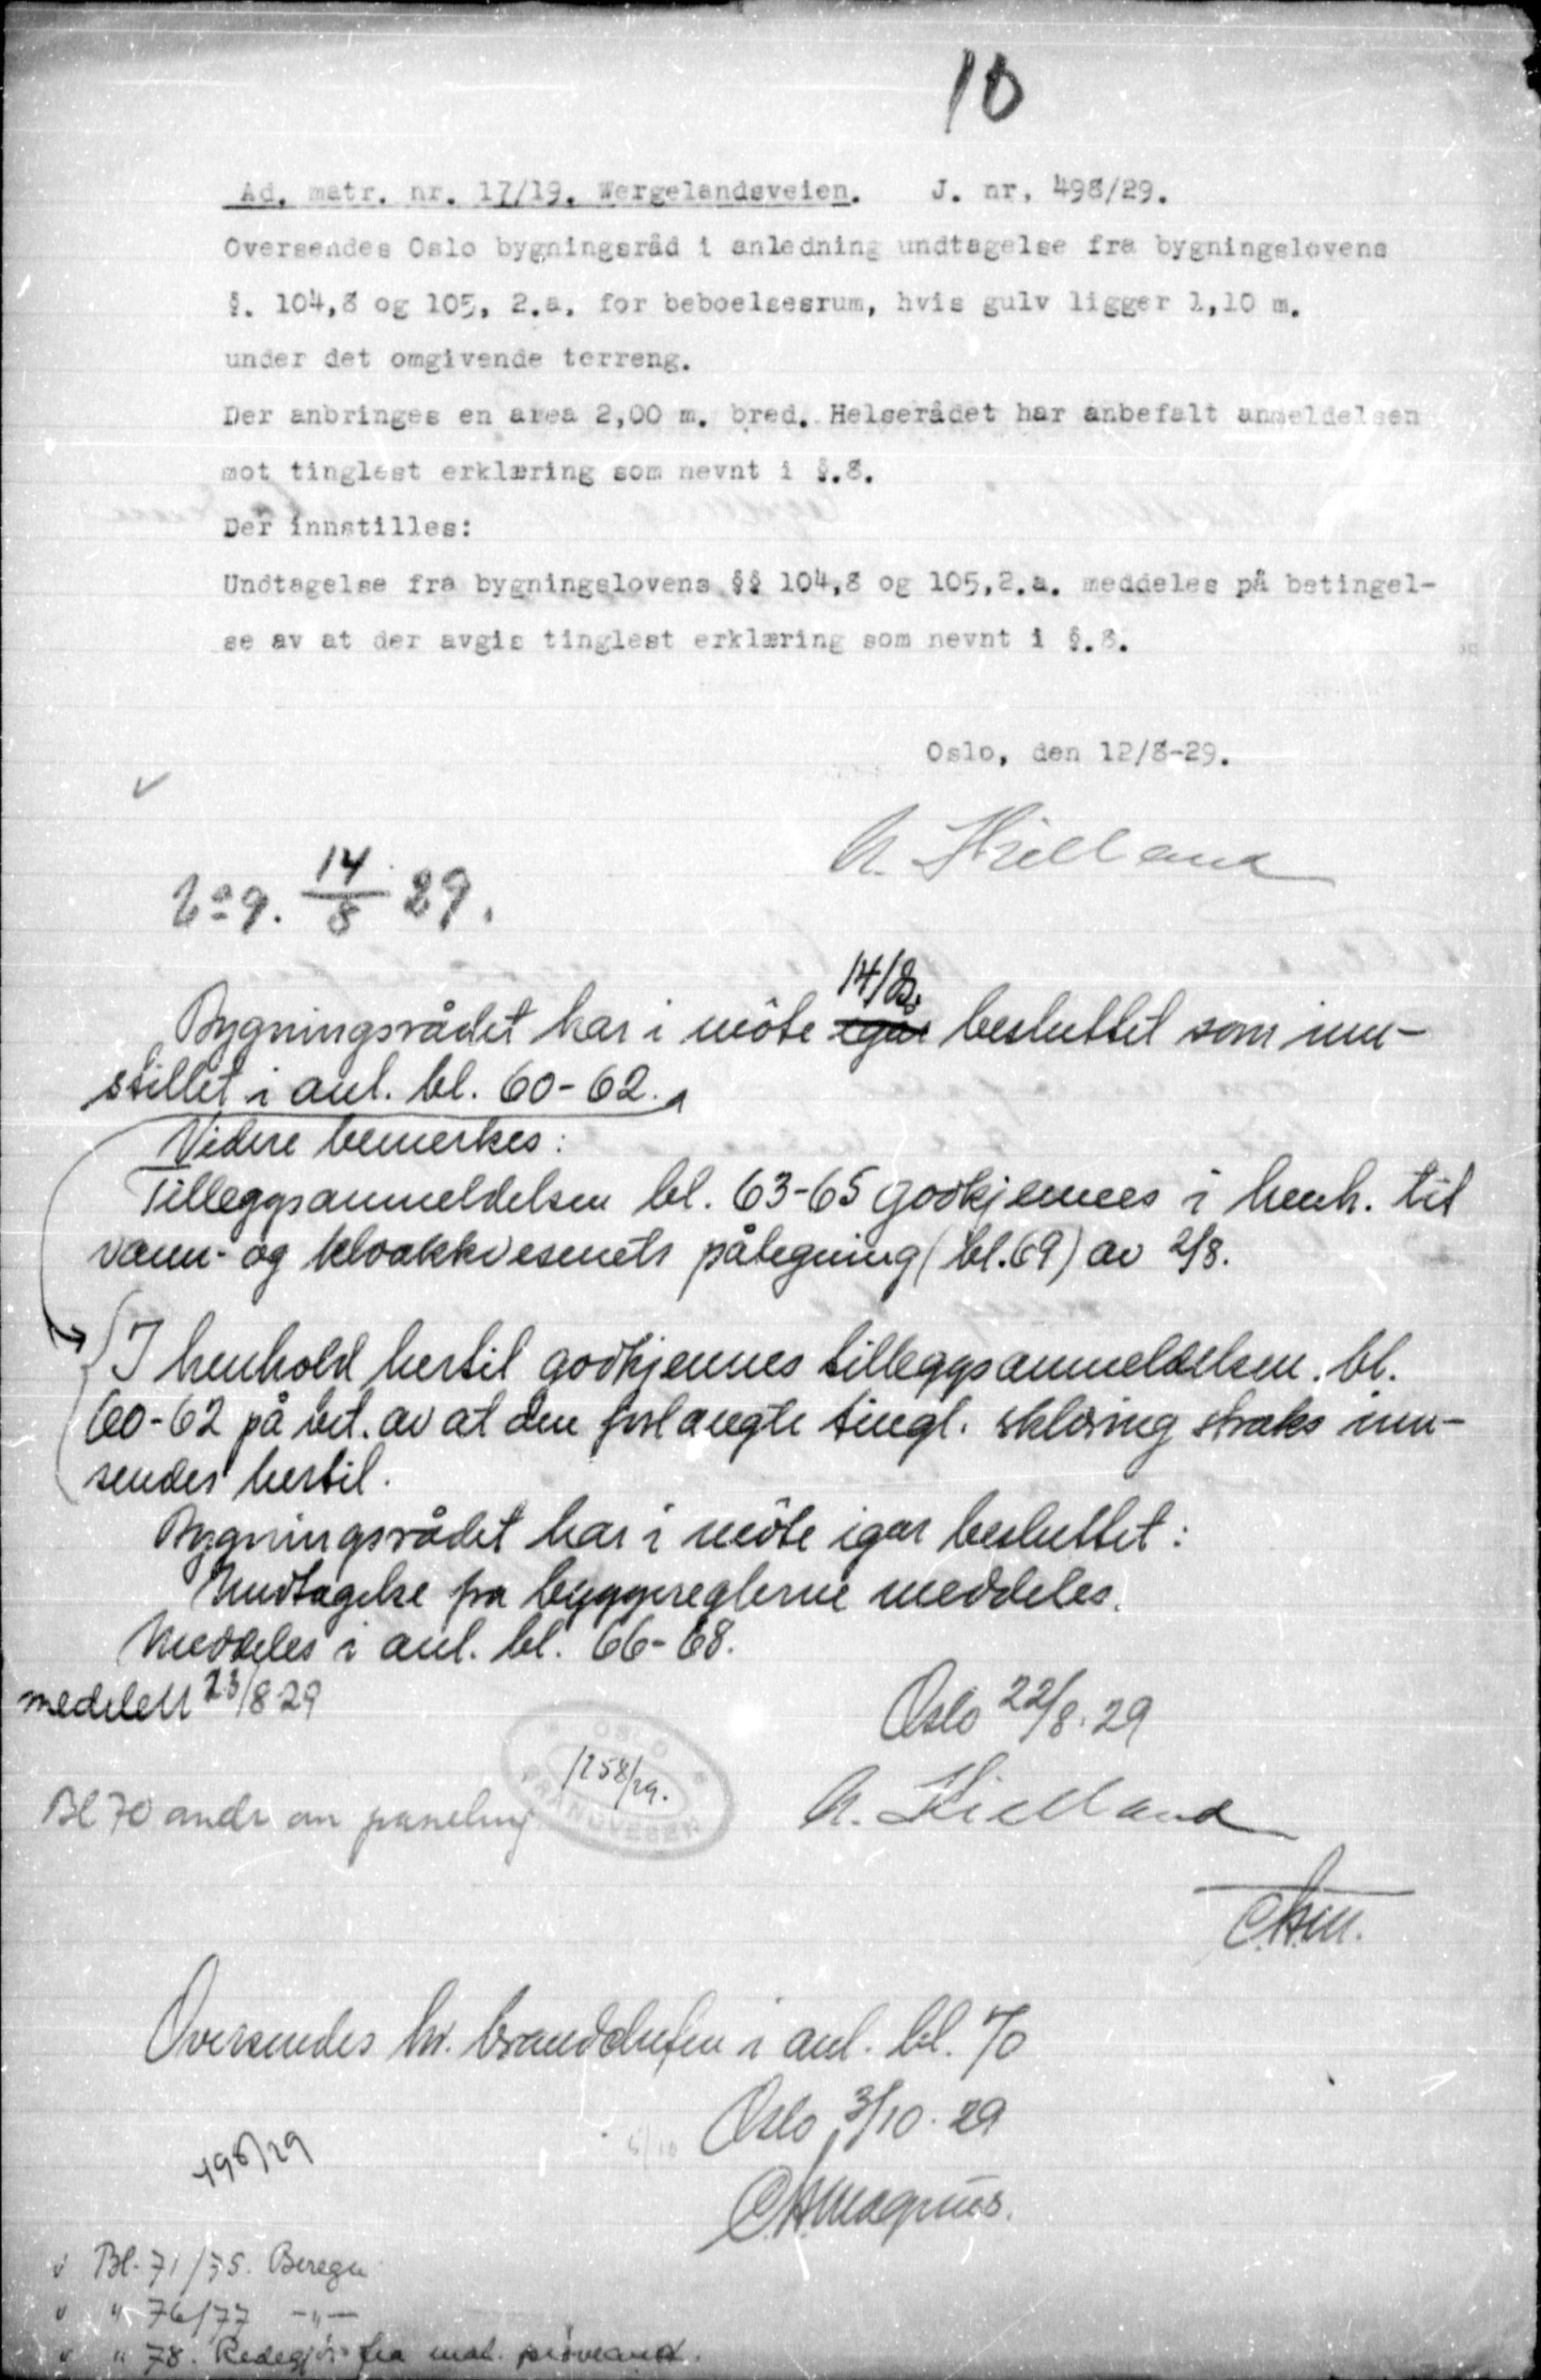 10
Ad. matr. nr. 17/19. Wergelandsveien. J. nr. 498/29.
Oversendes Oslo bygningsråd i anledning undtagelse fra bygningslovens
§. 104,8 og 105, 2.a. for beboelsesrum, hvis gulv ligger 1,10 m.
under det omgivende terreng.
Der anbringes en area 2,00 m. bred. Helserådet har anbefalt anmeldelsen
mot tinglest erklæring som nevnt i §.8.
Der innstilles:
Undtagelse fra bygningslovens §§ 104,8 og 105,2.a. meddeles på betingel-
se av at der avgis tinglest erklæring som nevnt i §.8.
Oslo, den 12/8-29.
Kielland
14/8 29.
14/8.
Bygningsrådet har i møte igår besluttet som inn-
stillet i anl. bl. 60-62.
Videre bemerkes:
Tilleggsanmeldelsen bl. 63-65 godkjennes i henh. til
vann- og kloakkvesenets påtegning (bl. 69) av 2/8.
I henhold hertil godkjennes tilleggsanmeldelsen bl.
60-62 på bet. av at den forlangte tingl. erklæring straks inn-
sendes hertil.
Bygningsrådet har i møte igår besluttet:
Undtagelse fra byggereglerne meddeles.
Meddeles i anl. bl. 66-68.
meddelt 23/8 29
Oslo 22/8.29
OSLO
1258/29.
BRANDVESEN
Bl 70 andr om paneling
Kielland
C.H.M.
Oversendes hr. brandchefen i anl. bl. 70
Oslo 3/10.29
498/29
C.H. Magnus.
Bl. 71/75. Beregn
" 76/77 -"-
" 78. Redegjør fra mat. prøveanst.